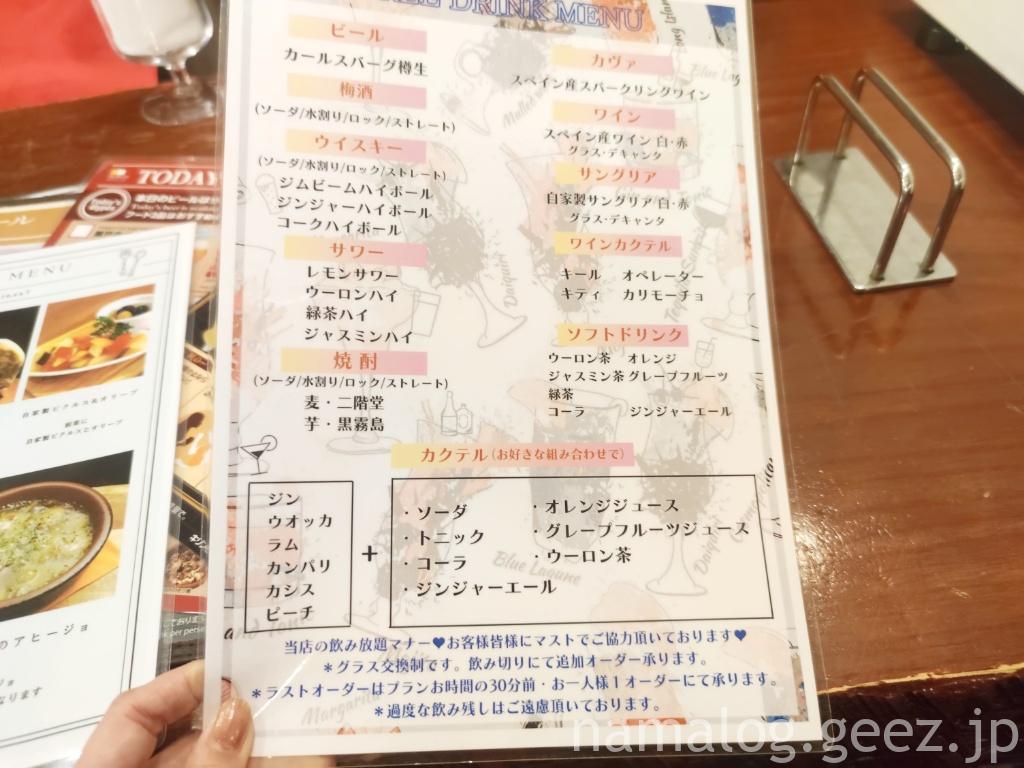 DRINK MENU
ビール
カールスバーグ樽生
梅酒
(ソーダ/水割り/ロック/ストレート)
ウイスキー
(ソーダ/水割り/ロック/ストレート)
ジムビームハイボール
ジンジャーハイボール
コークハイボール
サワー
レモンサワー
ウーロンハイ
緑茶ハイ
ジャスミンハイ
焼酎
(ソーダ/水割り/ロック/ストレート)
麦・二階堂
芋・黒霧島
カヴァ
スペイン産スパークリングワイン
ワイン
スペイン産ワイン 白・赤
グラス・デキャンタ
サングリア
自家製サングリア/白・赤
グラス・デキャンタ
ワインカクテル
キール オペレーター
キティ カリモーチョ
ソフトドリンク
ウーロン茶 オレンジ
ジャスミン茶 グレープフルーツ
緑茶
コーラ ジンジャーエール
カクテル(お好きな組み合わせで)
ジン
ウオッカ
ラム
カンパリ
カシス
ピーチ
+
・ソーダ
・トニック
・コーラ
・ジンジャーエール
・オレンジジュース
・グレープフルーツジュース
・ウーロン茶
当店の飲み放題マナー♥お客様皆様にマストでご協力頂いております♥
*グラス交換制です。飲み切りにて追加オーダー承ります。
*ラストオーダーはプランお時間の30分前・お一人様1オーダーにて承ります。
*過度な飲み残しはご遠慮頂いております。
Blue Lag
Daiquiri
Blue Lagune
Margarita
TODAY
本日のビールは
MENU
自家製ピクルス&オリーブ
自家製ピクルスとオリーブ
のアヒージョ
namalog.geez.jp